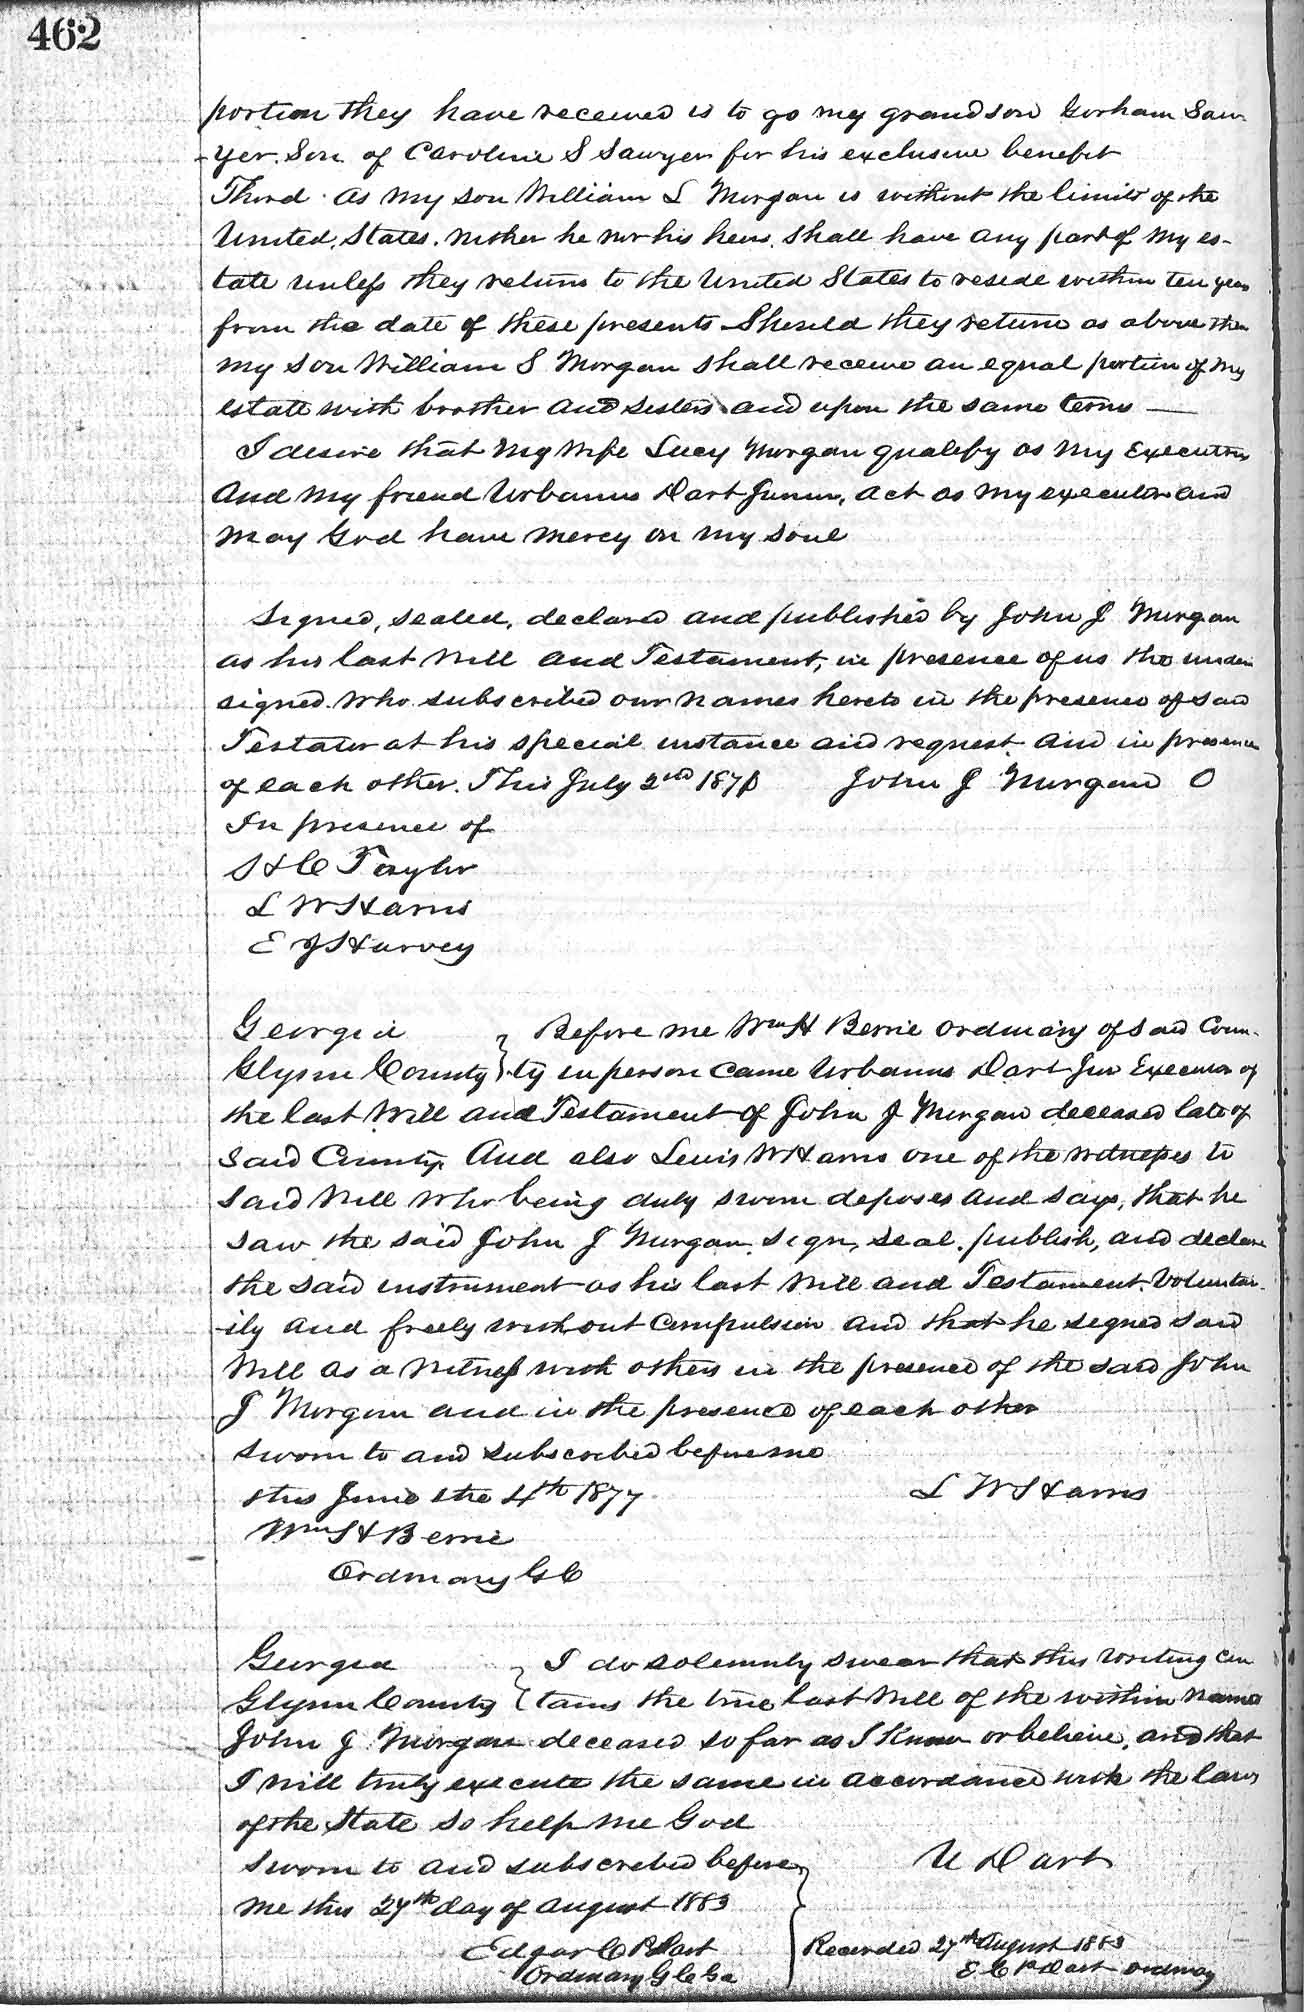 462
portion they have received is to go my grandson Gorham Saw-
-yer. Son of Caroline S Sawyer for his exclusive benefit
Third. As my son William S Morgan is without the limits of the
United States. neither he nor his heirs shall have any part of my es-
tate unless they return to the United States to reside within ten years
from the date of these presents Should they return as above then
my son William S Morgan shall receive an equal portion of my
estate with brother and sisters and upon the same terms —
I desire that my wife Lucy Morgan qualify as my Executrix
And my friend Urbanus Dart Junior, act as my executor and
may God have mercy on my soul
Signed, sealed, declared and published by John J Morgan
as his last Will and Testament, in presence of us the under
signed who subscribed our names hereto in the presence of said
Testator at his special instance and request and in presence
of each other. This July 2nd John J Morgan O
In presence of
H C Taylor
L W Harris
E J Harvey
Georgia } Before me Wm H Berrie Ordinary of said Coun-
Glynn County } ty in person came Urbanus Dart Jun Executor of
the last Will and Testament of John J Morgan deceased late of
said County. And also Lewis W Harris one of the witnesses to
said Will who being duly sworn deposes and says, that he
saw the said John J Morgan. sign, seal. publish, and declare
the said instrument as his last Will and Testament. Voluntar-
-ily and freely without compulsion and that he signed said
Will as a witness with others in the presence of the said John
J Morgan and in the presence of each other
Sworn to and subscribed before me
this June the 4th 1877 L W Harris
Wm H Berrie
Ordinary G C
Georgia } I do solemnly swear that this writing con
Glynn County } tains the true last Will of the within named
John J Morgan deceased so far as I know or believe, and that
I will truly execute the same in accordance with the laws
of the State So help me God
Sworn to and subscribed before U Dart
me this 27th day of August 1883
Edgar C P Dart Recorded 27th August 1883
Ordinary G C Ga E C P Dart Ordinary